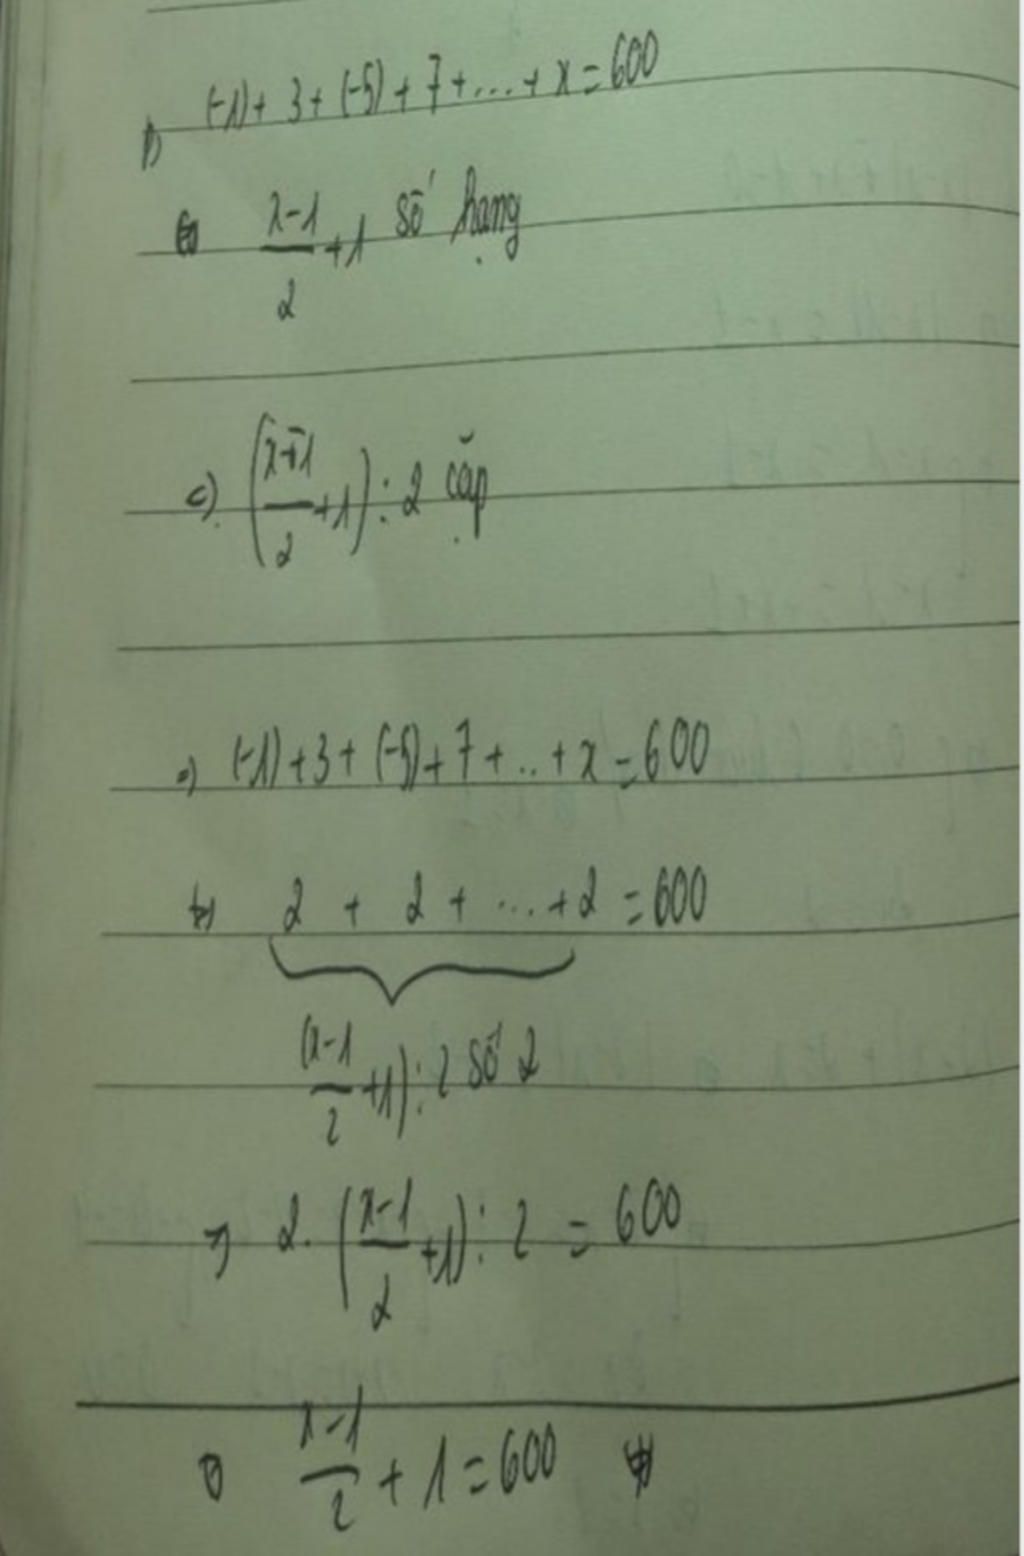 (-1) + 3 + (-5) + 7 + ... + x = 600
x-1/2 + 1 số hạng
(x+1/2 + 1) : 2 cặp
=) (-1) + 3 + (-5) + 7 + .. + x = 600
2 + 2 + ... + 2 = 600
(x-1/2 + 1) : 2 số 2
=> 2. (x-1/2 + 1) : 2 = 600
x-1/2 + 1 = 600